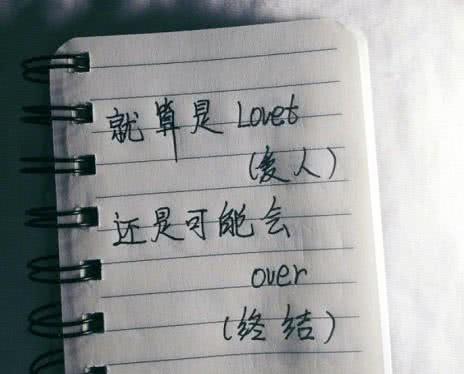 就算是 Lovet
(爱人)
还是可能会
over
(终结)